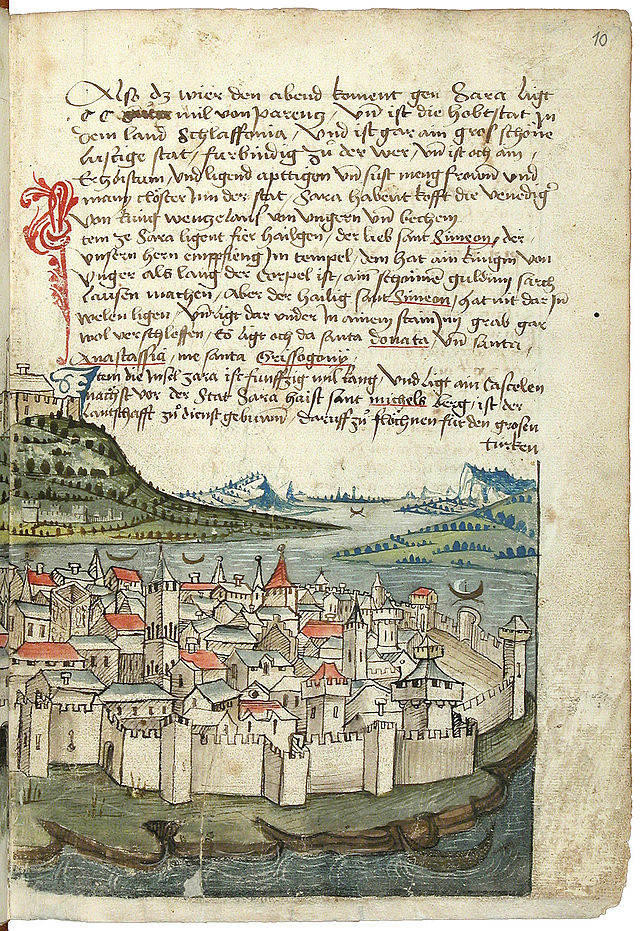 10
Also dz wier den abend koment gen Sara ligt
c c mil von parentz / Vnd ist die hobtstat Jn
dem land Schlaffonia / Vnd ist gar ain gros schöne
lustige stat / furbindig zů der wer / vnd ist och ain
Ertzbistum / Vnd ligend apttigen vnd sust meng frowen vnd
mann clöster Jnn der stat / Sara habent kofft die venedig
von kung wentzelaus von vngern vnd bechem
tem ze Sara ligent fier hailgen / der lieb sant Simeon / der
vnsern hern empfieng Jm tempel / dem hat ain kungin von
Vnger als lang der Corpel ist / ain schoinen guldinn sarch
laussen machen / Aber der hailig sant Simeon / hat nit dar Jn
welen ligen / Vnd ligt dar vnder Jn ainem stainin grab gar
wol verschlossen / Es ligt och da santa donata vnd santa
Anastassia / me santa Grissogony
tem die Insel zara ist funffzig mil lang / Vnd ligt ain Castelen
nachst vor der Stat Sara haist sant michels berg / ist der
lantschafft zů dienst gebuwen / daruff zů flöhnen fur den grosen
turken